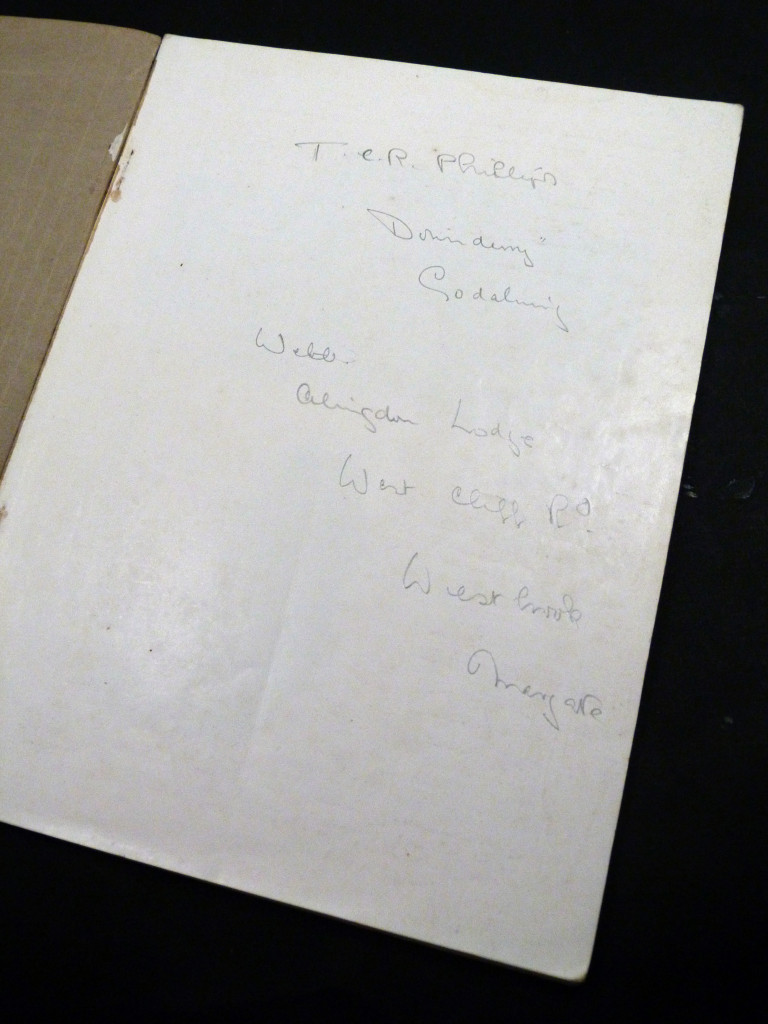 T. E. R. Phillips
"Downderry"
Godalming
Webb.
Abingdon Lodge
West Cliff Rd.
Westbrook
Margate